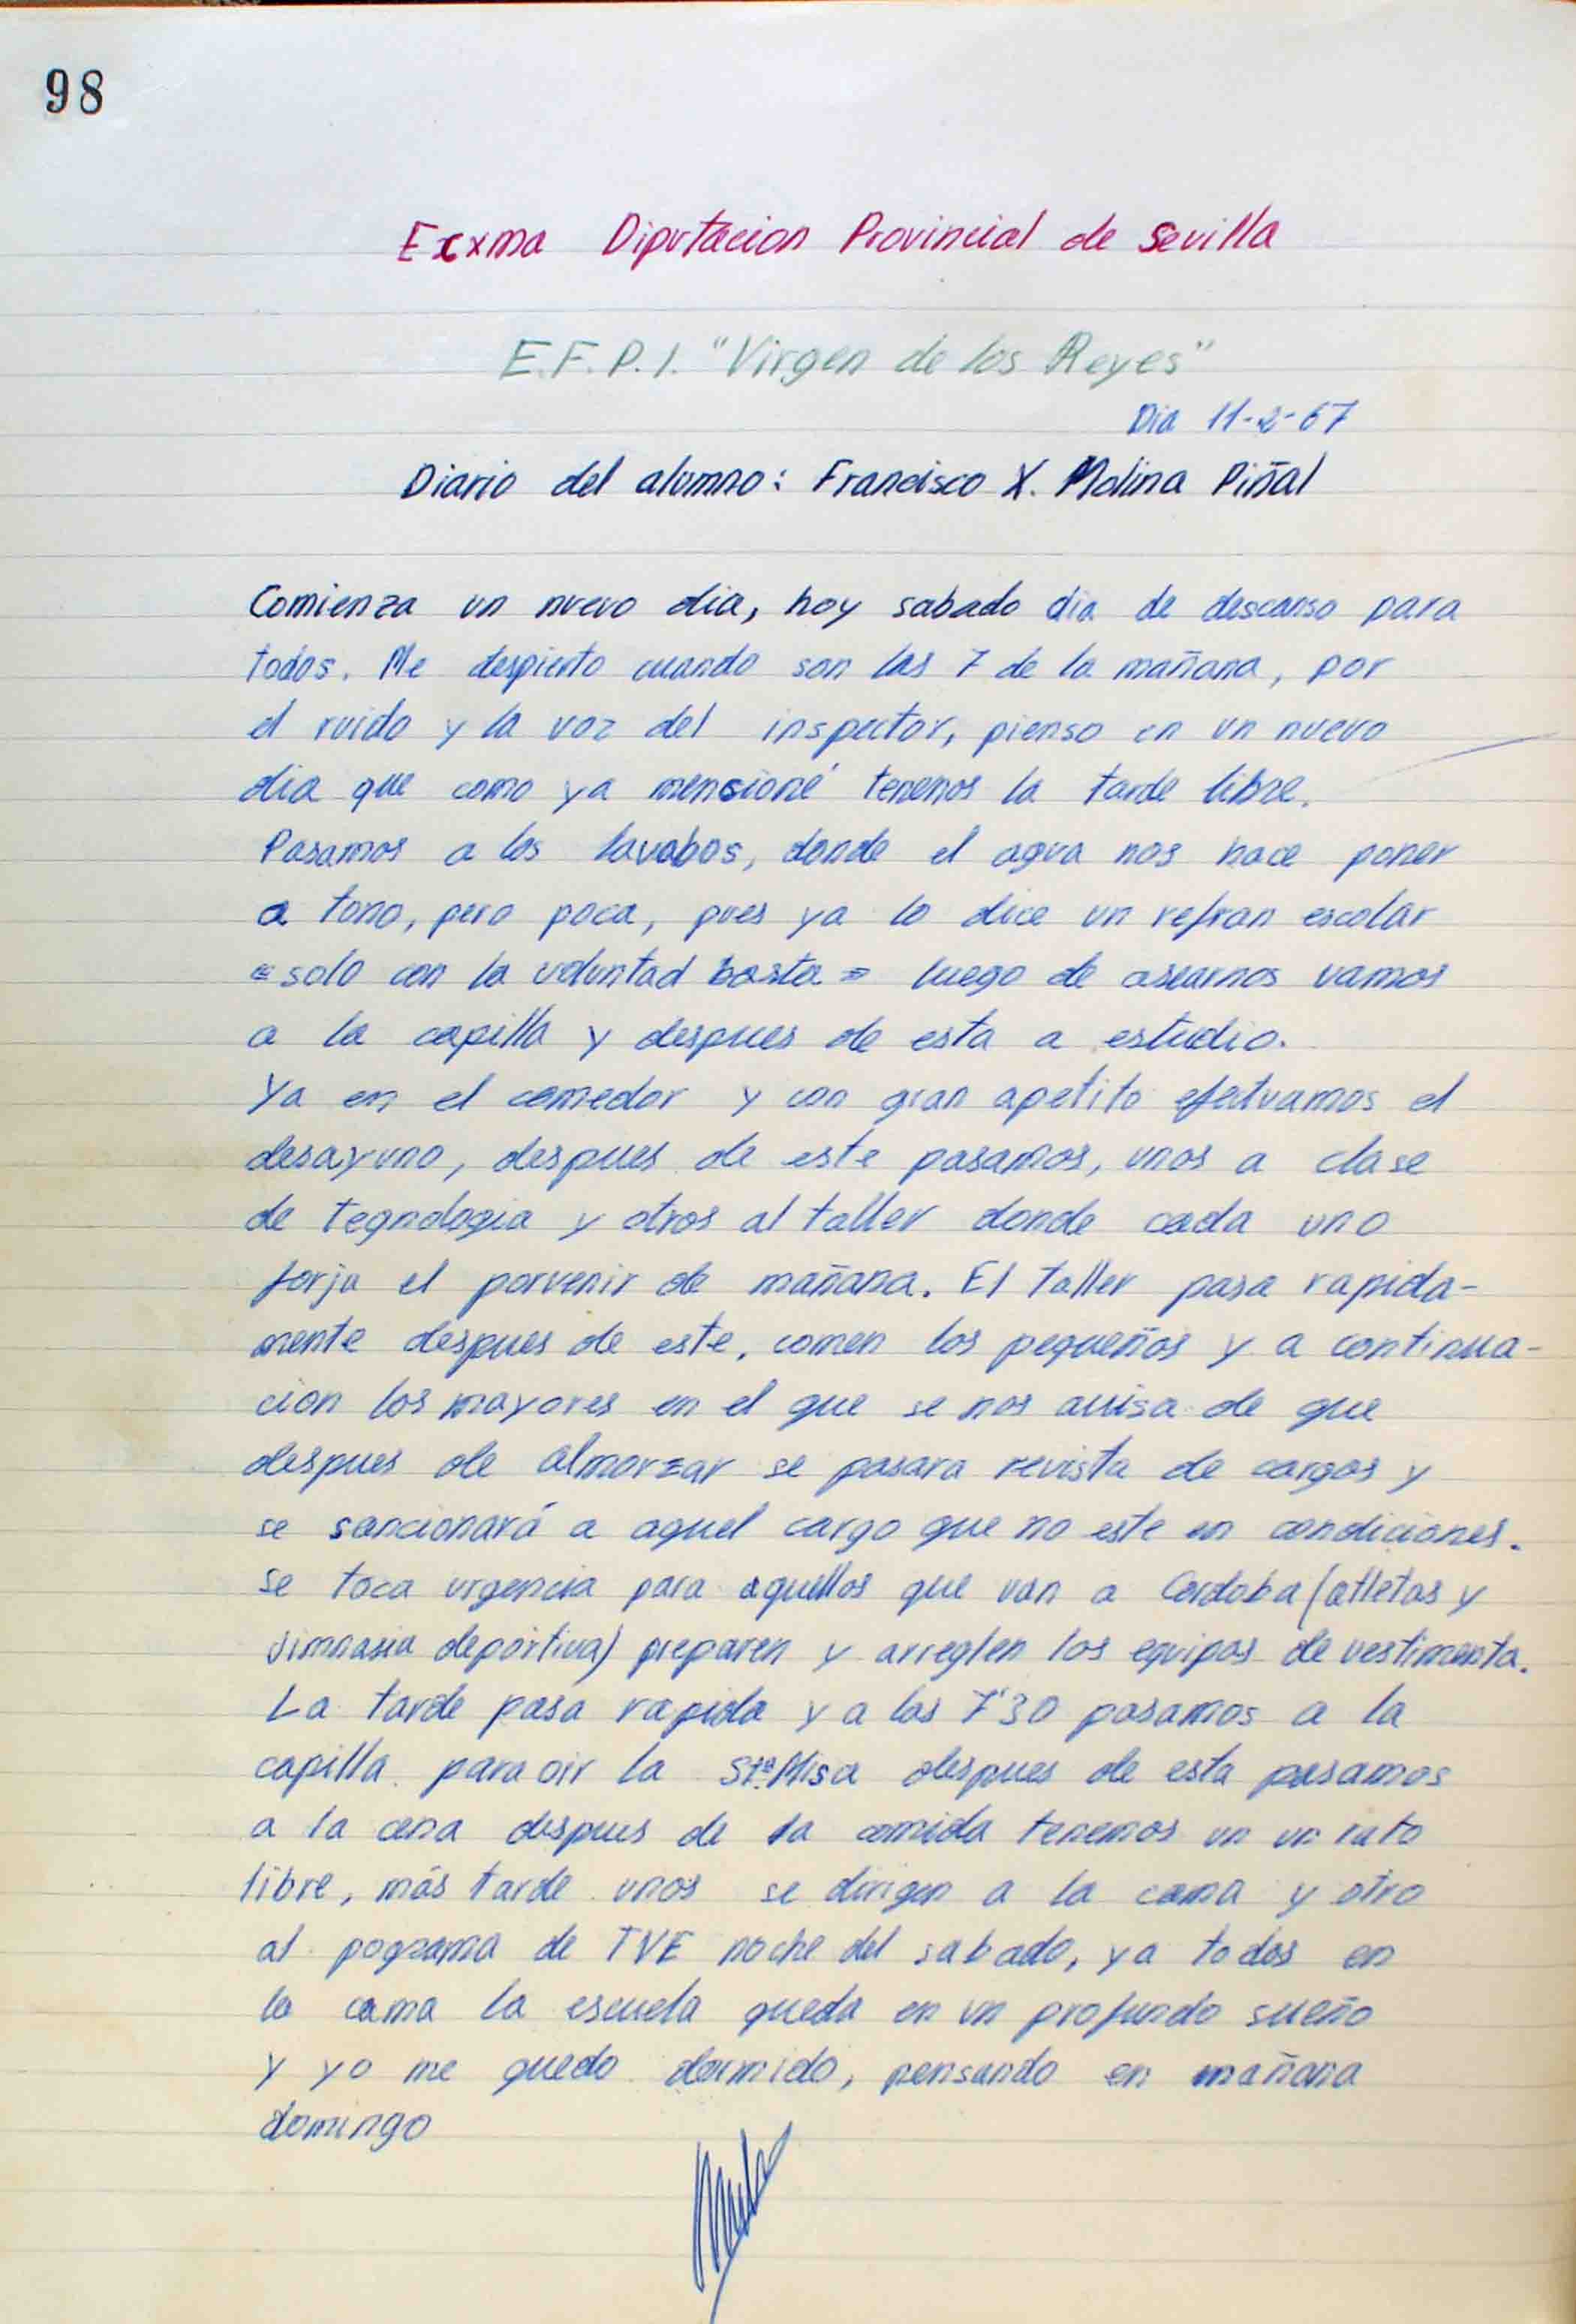 98
Excma Diputacion Provincial de Sevilla
E.F.P.I. "Virgen de los Reyes"
Dia 11-2-67
Diario del alumno: Francisco X. Molina Piñal
Comienza un nuevo dia, hoy sabado dia de descanso para
todos. Me despierto cuando son las 7 de la mañana, por
el ruido y la voz del inspector, pienso en un nuevo
dia que como ya mensioné tenenos la tarde libre.
Pasamos a los lavabos, donde el agua nos hace poner
a tono, pero poca, pues ya lo dice un refran escolar
"solo con la voluntad basta" luego de asearnos vamos
a la capilla y despues de esta a estudio.
Ya en el comedor y con gran apetito efectuamos el
desayuno, despues de este pasamos, unos a clase
de tegnologia y otros al taller donde cada uno
forja el porvenir de mañana. El taller pasa rapida-
mente despues de este, comen los pequeños y a continua-
cion los mayores en el que se nos avisa de que
despues de almorzar se pasara revista de cargos y
se sancionará a aquel cargo que no este en condiciones.
se toca urgencia para aquellos que van a Cordoba (atletas y
Jimnasia deportiva) preparen y arreglen los equipos de vestimenta.
La tarde pasa rapida y a las 7'30 pasamos a la
capilla para oir la Stª Misa despues de esta pasamos
a la cena despues de la comida tenemos un un rato
libre, más tarde unos se dirigen a la cama y otro
al pograma de TVE noche del sabado, ya todos en
la cama la escuela queda en un profundo sueño
y yo me quedo dormido, pensando en mañana
domingo